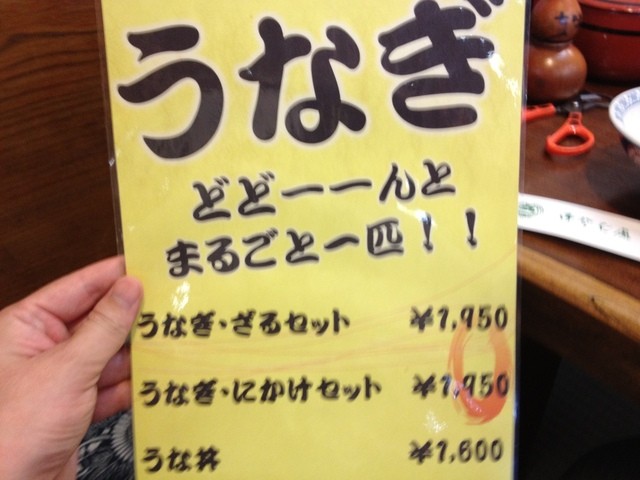 うなぎ
どどーーんと
まるごと一匹！！
うなぎ・ざるセット ¥1,950
うなぎ・にかけセット ¥1,950
うな丼 ¥1,600